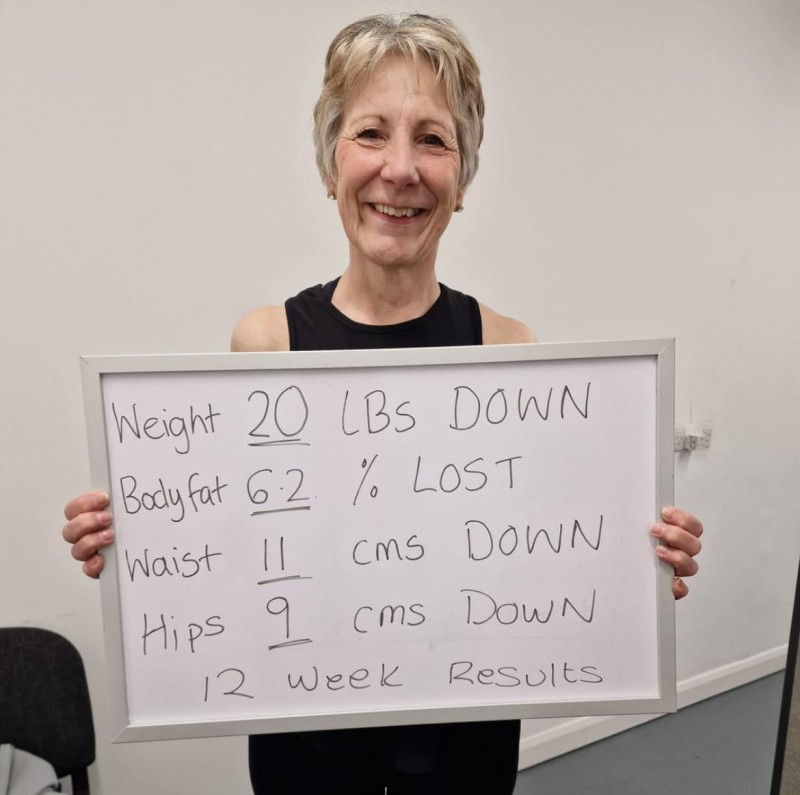 Weight 20 LBS DOWN
Bodyfat 6.2 % LOST
Waist 11 cms DOWN
Hips 9 cms DOWN
12 Week Results